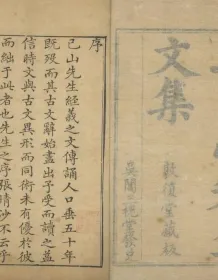 文集
堂藏板
序
己山先生經義之文傳誦人口垂五十年
既歿而其古文辭始盡出予受而讀之蓋
信時文與古文異形而同術未有優於彼
而絀于此者也先生之序張晴沙不云乎